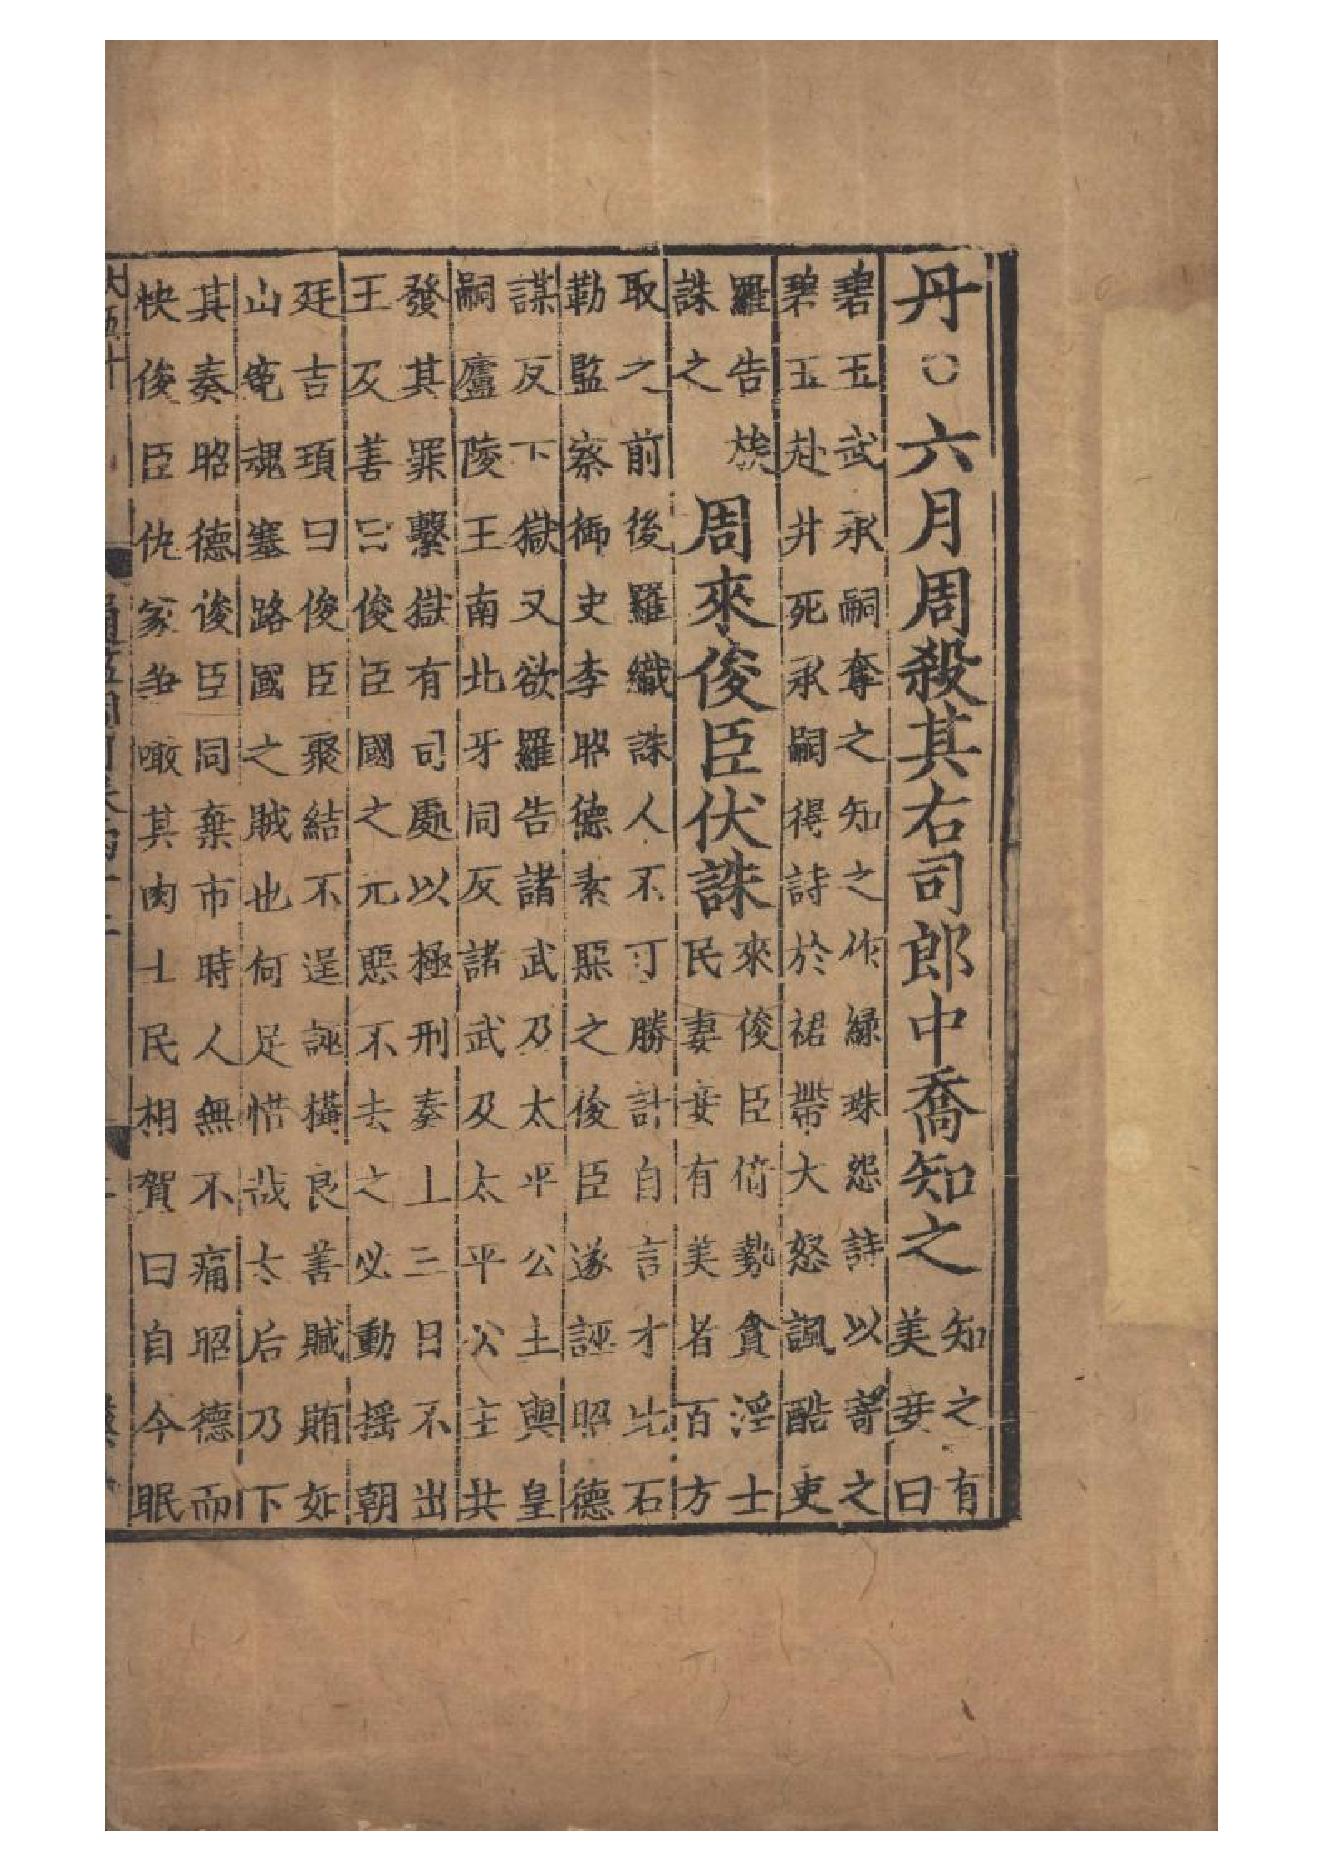 丹○六月周殺其右司郎中喬知之
知之有
美妾曰
碧玉武承嗣奪之知之作緑珠怨詩以寄之
碧玉赴井死承嗣得詩於裙帶大怒諷酷吏
羅告族
誅之
周來俊臣伏誅
來俊臣倚勢貪淫士
民妻妾有美者百方
取之前後羅織誅人不可勝計自言才比石
勒監察御史李昭德素惡之俊臣遂誣昭德
謀反下獄又欲羅告諸武乃太平公主與皇
嗣廬陵王南北牙同反諸武及太平公主共
發其罪繫獄有司處以極刑奏上三日不出
王及善曰俊臣國之元惡不去之必動揺朝
廷吉頊曰俊臣聚結不逞誣構良善贓賄如
山寃魂塞路國之賊也何足惜哉太后乃下
其奏昭德俊臣同棄市時人無不痛昭德而
快俊臣仇家爭噉其肉士民相賀曰自今眠